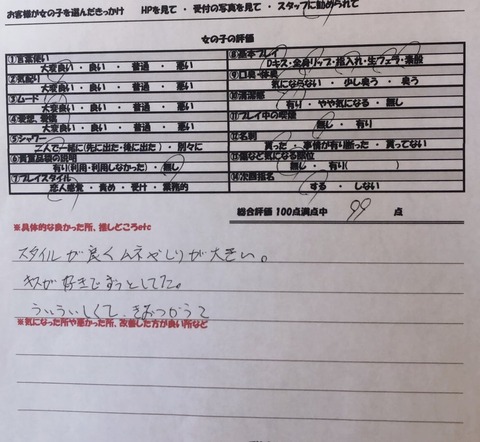 お客様が女の子を選んだきっかけ　HPを見て ・ 受付の写真を見て ・ スタッフに勧められて
女の子の評価
①言葉使い
大変良い ・ 良い ・ 普通 ・ 悪い
②気配り
大変良い ・ 良い ・ 普通 ・ 悪い
③ムード
大変良い ・ 良い ・ 普通 ・ 悪い
大変良い ・ 良い ・ 普通 ・ 悪い
⑤シャワー
二人で一緒に(先に出た・後に出た) ・ 別々に
⑥貴重品袋の説明
有り(利用・利用しなかった) ・ 無し
⑦プレイスタイル
恋人感覚 ・ 責め ・ 受け ・ 業務的
⑧基本プレイ
Dキス・全身リップ・指入れ・生フェラ・素股
⑨口臭・体臭
気にならない ・ 少し臭う ・ 臭う
⑩清潔感
有り ・ やや気になる ・ 無し
⑪プレイ中の喫煙
無し ・ 有り
⑫名刺
貰った ・ 事情が有り断った ・ 貰ってない
⑬傷など気になる部位
無し ・ 有り(　　)
⑭次回指名
する ・ しない
総合評価 100点満点中 99 点
※具体的な良かった所、推しどころetc
スタイルが良くムネやしりが大きい。
キスが好きでずっとしてた。
ういういしくて、きをつかうて
※気になった所や悪かった所、改善した方が良い所など